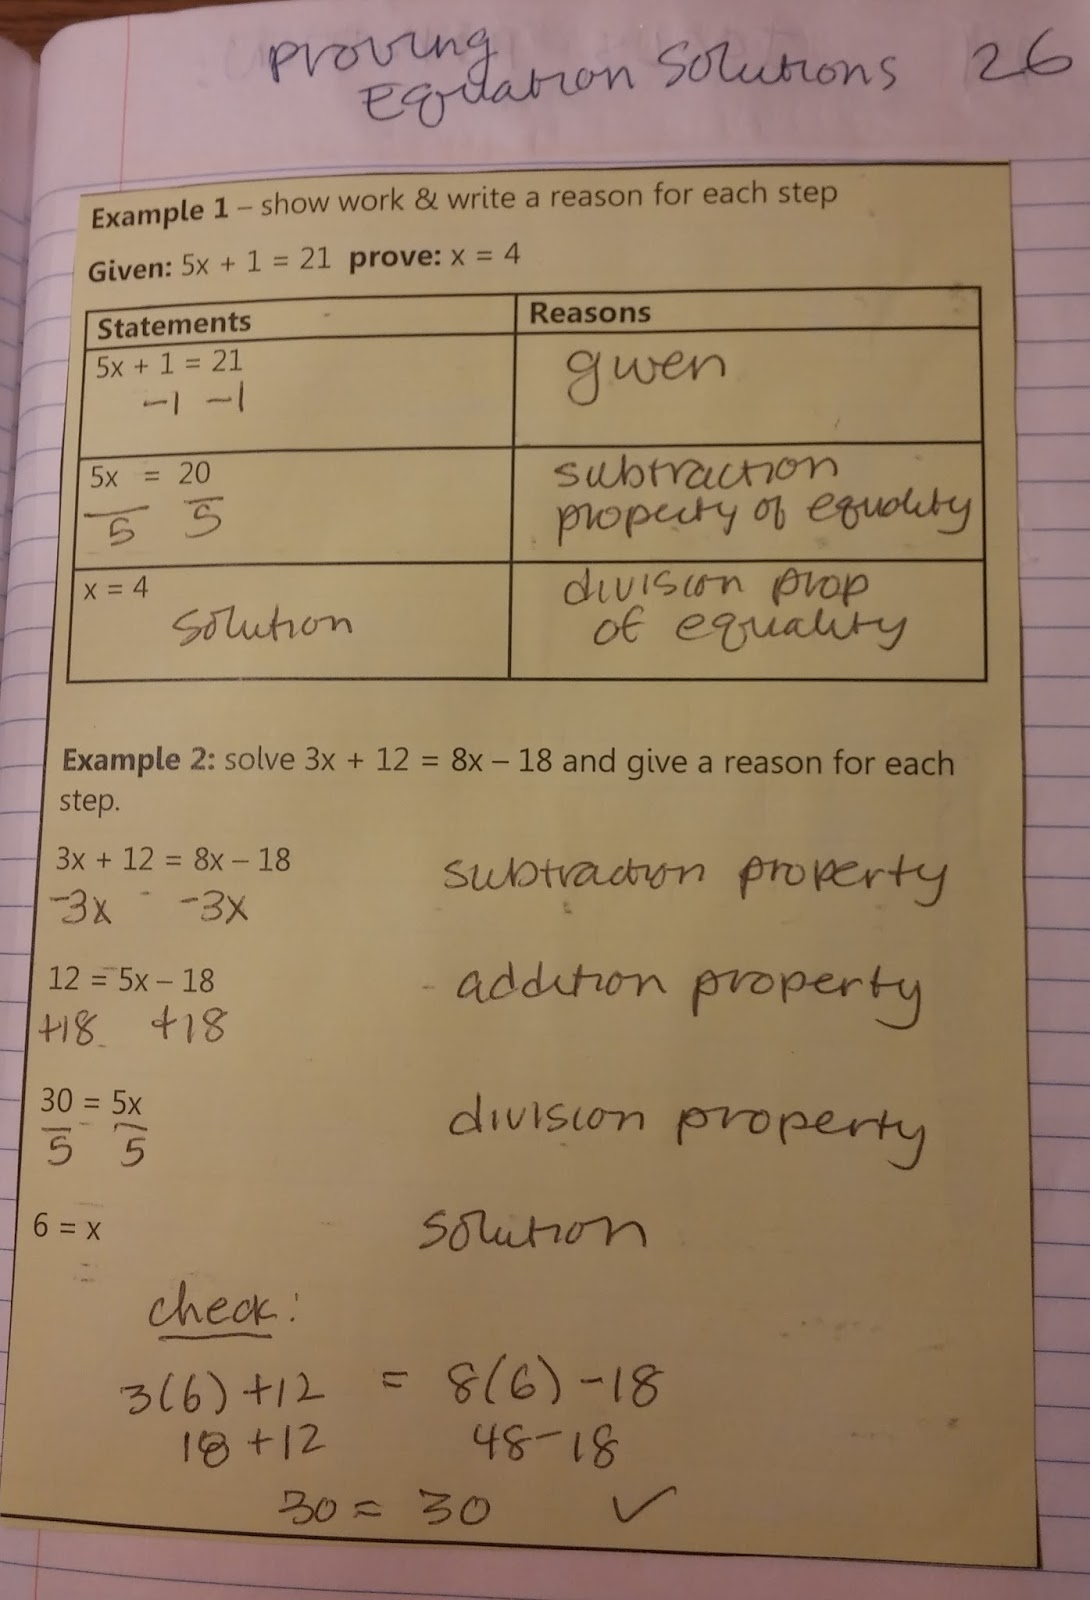 proving
Equation Solutions 26
Example 1 – show work & write a reason for each step
Given: 5x + 1 = 21 prove: x = 4
Statements Reasons
5x + 1 = 21 given
-1 -1
5x = 20 subtraction
5 5 property of equality
x = 4 division prop
solution of equality
Example 2: solve 3x + 12 = 8x – 18 and give a reason for each
step.
3x + 12 = 8x – 18 subtraction property
-3x -3x
12 = 5x – 18 addition property
+18 +18
30 = 5x division property
5 5
6 = x solution
check:
3(6) +12 = 8(6) -18
18 +12 48-18
30 = 30 ✓